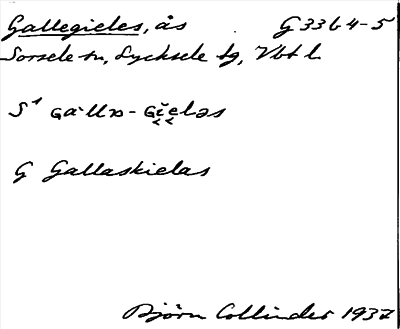 Gallegieles, ås G 33 b 4-5
Sorsele sn, Lycksele tg, Vbt l.
S¹ Gallaskielas
G Gallaskielas
Björn Collinder 1937